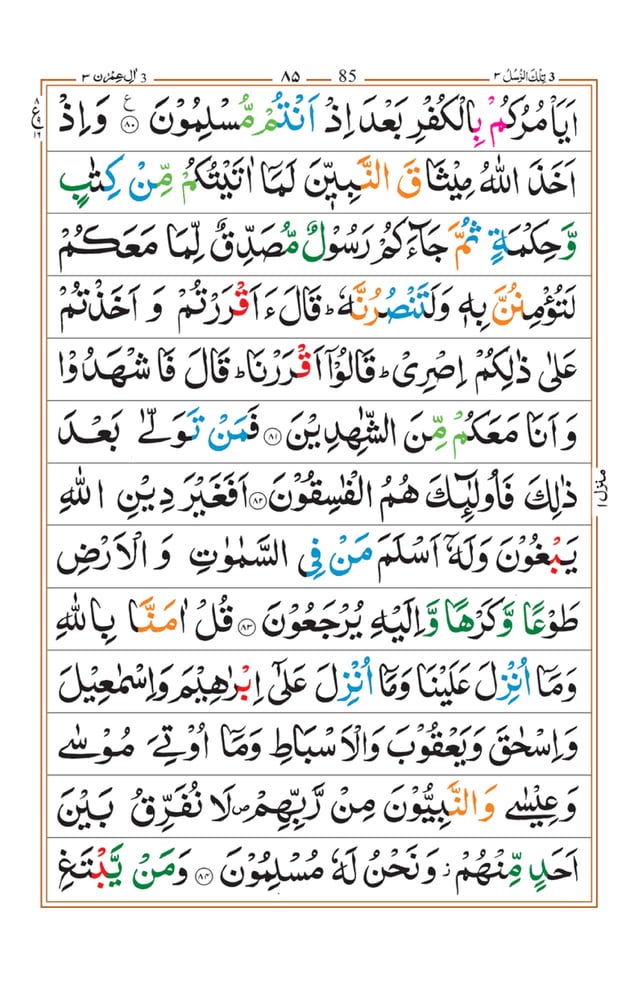 تِلْكَ الرُّسُلُ ٣ 3
85 ٨٥
3 اٰلِ عِمْرٰن ٣
اَيَاْمُرُكُمْ بِالْكُفْرِ بَعْدَ اِذْ اَنْتُمْ مُّسْلِمُوْنَ ﴿٨٠﴾ ع وَاِذْ
اَخَذَ اللّٰهُ مِيْثَاقَ النَّبِيّٖنَ لَمَاۤ اٰتَيْتُكُمْ مِّنْ كِتٰبٍ
وَّحِكْمَةٍ ثُمَّ جَآءَكُمْ رَسُوْلٌ مُّصَدِّقٌ لِّمَا مَعَكُمْ
لَتُؤْمِنُنَّ بِهٖ وَلَتَنْصُرُنَّهٗ ؕ قَالَ ءَاَقْرَرْتُمْ وَاَخَذْتُمْ
عَلٰى ذٰلِكُمْ اِصْرِىْ ؕ قَالُوْۤا اَقْرَرْنَا ؕ قَالَ فَاشْهَدُوْا
وَاَنَا مَعَكُمْ مِّنَ الشّٰهِدِيْنَ ﴿٨١﴾ فَمَنْ تَوَلّٰى بَعْدَ
ذٰلِكَ فَاُولٰٓئِكَ هُمُ الْفٰسِقُوْنَ ﴿٨٢﴾ اَفَغَيْرَ دِيْنِ اللّٰهِ
يَبْغُوْنَ وَلَهٗۤ اَسْلَمَ مَنْ فِى السَّمٰوٰتِ وَالْاَرْضِ
طَوْعًا وَّكَرْهًا وَّاِلَيْهِ يُرْجَعُوْنَ ﴿٨٣﴾ قُلْ اٰمَنَّا بِاللّٰهِ
وَمَاۤ اُنْزِلَ عَلَيْنَا وَمَاۤ اُنْزِلَ عَلٰٓى اِبْرٰهِيْمَ وَاِسْمٰعِيْلَ
وَاِسْحٰقَ وَيَعْقُوْبَ وَالْاَسْبَاطِ وَمَاۤ اُوْتِىَ مُوْسٰى
وَعِيْسٰى وَالنَّبِيُّوْنَ مِنْ رَّبِّهِمْ ص لَا نُفَرِّقُ بَيْنَ
اَحَدٍ مِّنْهُمْ ز وَنَحْنُ لَهٗ مُسْلِمُوْنَ ﴿٨٤﴾ وَمَنْ يَّبْتَغِ
منزل ١